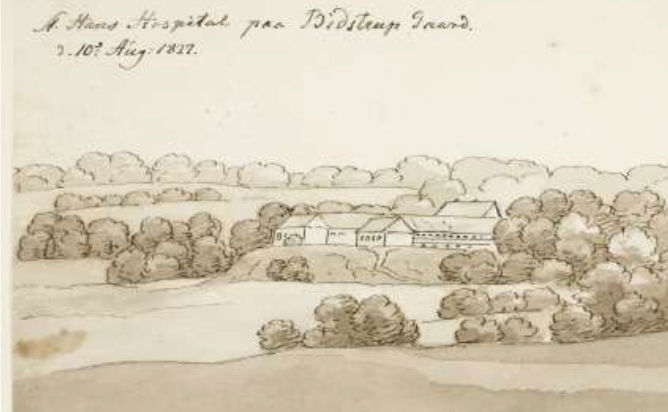 St. Hans Hospital paa Bidstrup Gaard.
d. 10de Aug: 1827.